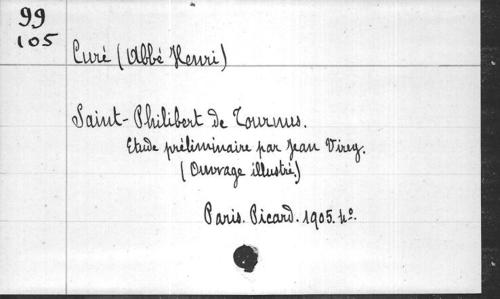 99
105
Curé (Abbé Henri)
Saint-Philibert de Tournus.
Etude préliminaire par Jean Virey.
(Ouvrage illustré)
Paris. Picard. 1905. 4º.